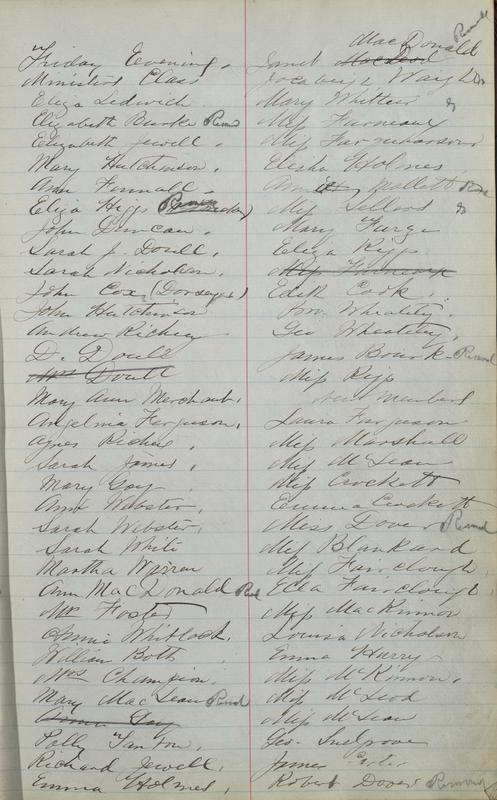 Friday Evening.
Ministers Class
Eliza Ledwich
Elizabeth Burke Removd
Elizabeth Jewell.
Mary Hutchinson.
Ann Fennall.
Eliza Higgs
John Duncan.
Sarah J. Doull.
Sarah Nicholson.
John Cox (Dorsey st)
John Hutchinson
Andrew Richey
D. Doull
Mrs Doull
Mary Ann Merchant.
Angelina Ferguson.
Agnes Richey.
Sarah James.
Mary Gay
Ann Webster.
Sarah Webster.
Sarah White
Martha Warren
Ann MacDonald Red
Mr Foster
Annie Whitlock.
William Botts
Mrs Champion.
Mary MacLean Removd
Gay
Polly Tanton.
Richard Jewell.
Emma Holmes.
Janet MacDonald Removd
Waigh
Mary Whittier
Miss Furneaux
Miss Farquharson
Elisha Holmes
Annie Mollett Rem
Miss Sellood
Mary Furge
Eliza Ripp
Miss Furneaux
Edith Cook.
Wm Wheatley.
Geo Wheatley.
James Bourke Removd
Miss Ripp
new members
Laura Ferguson
Miss Marshall
Miss McLean
Miss Crockett
Emma Crockett
Miss Dover Removd
Miss Blankard
Miss Fairclough
Ella Fairclough.
Miss MacKinnon
Louisa Nicholson
Emma Hurry
Miss McKinnon.
Miss McLeod
Miss McLean
Geo. Snelgrove
James
Robert Dover Removed